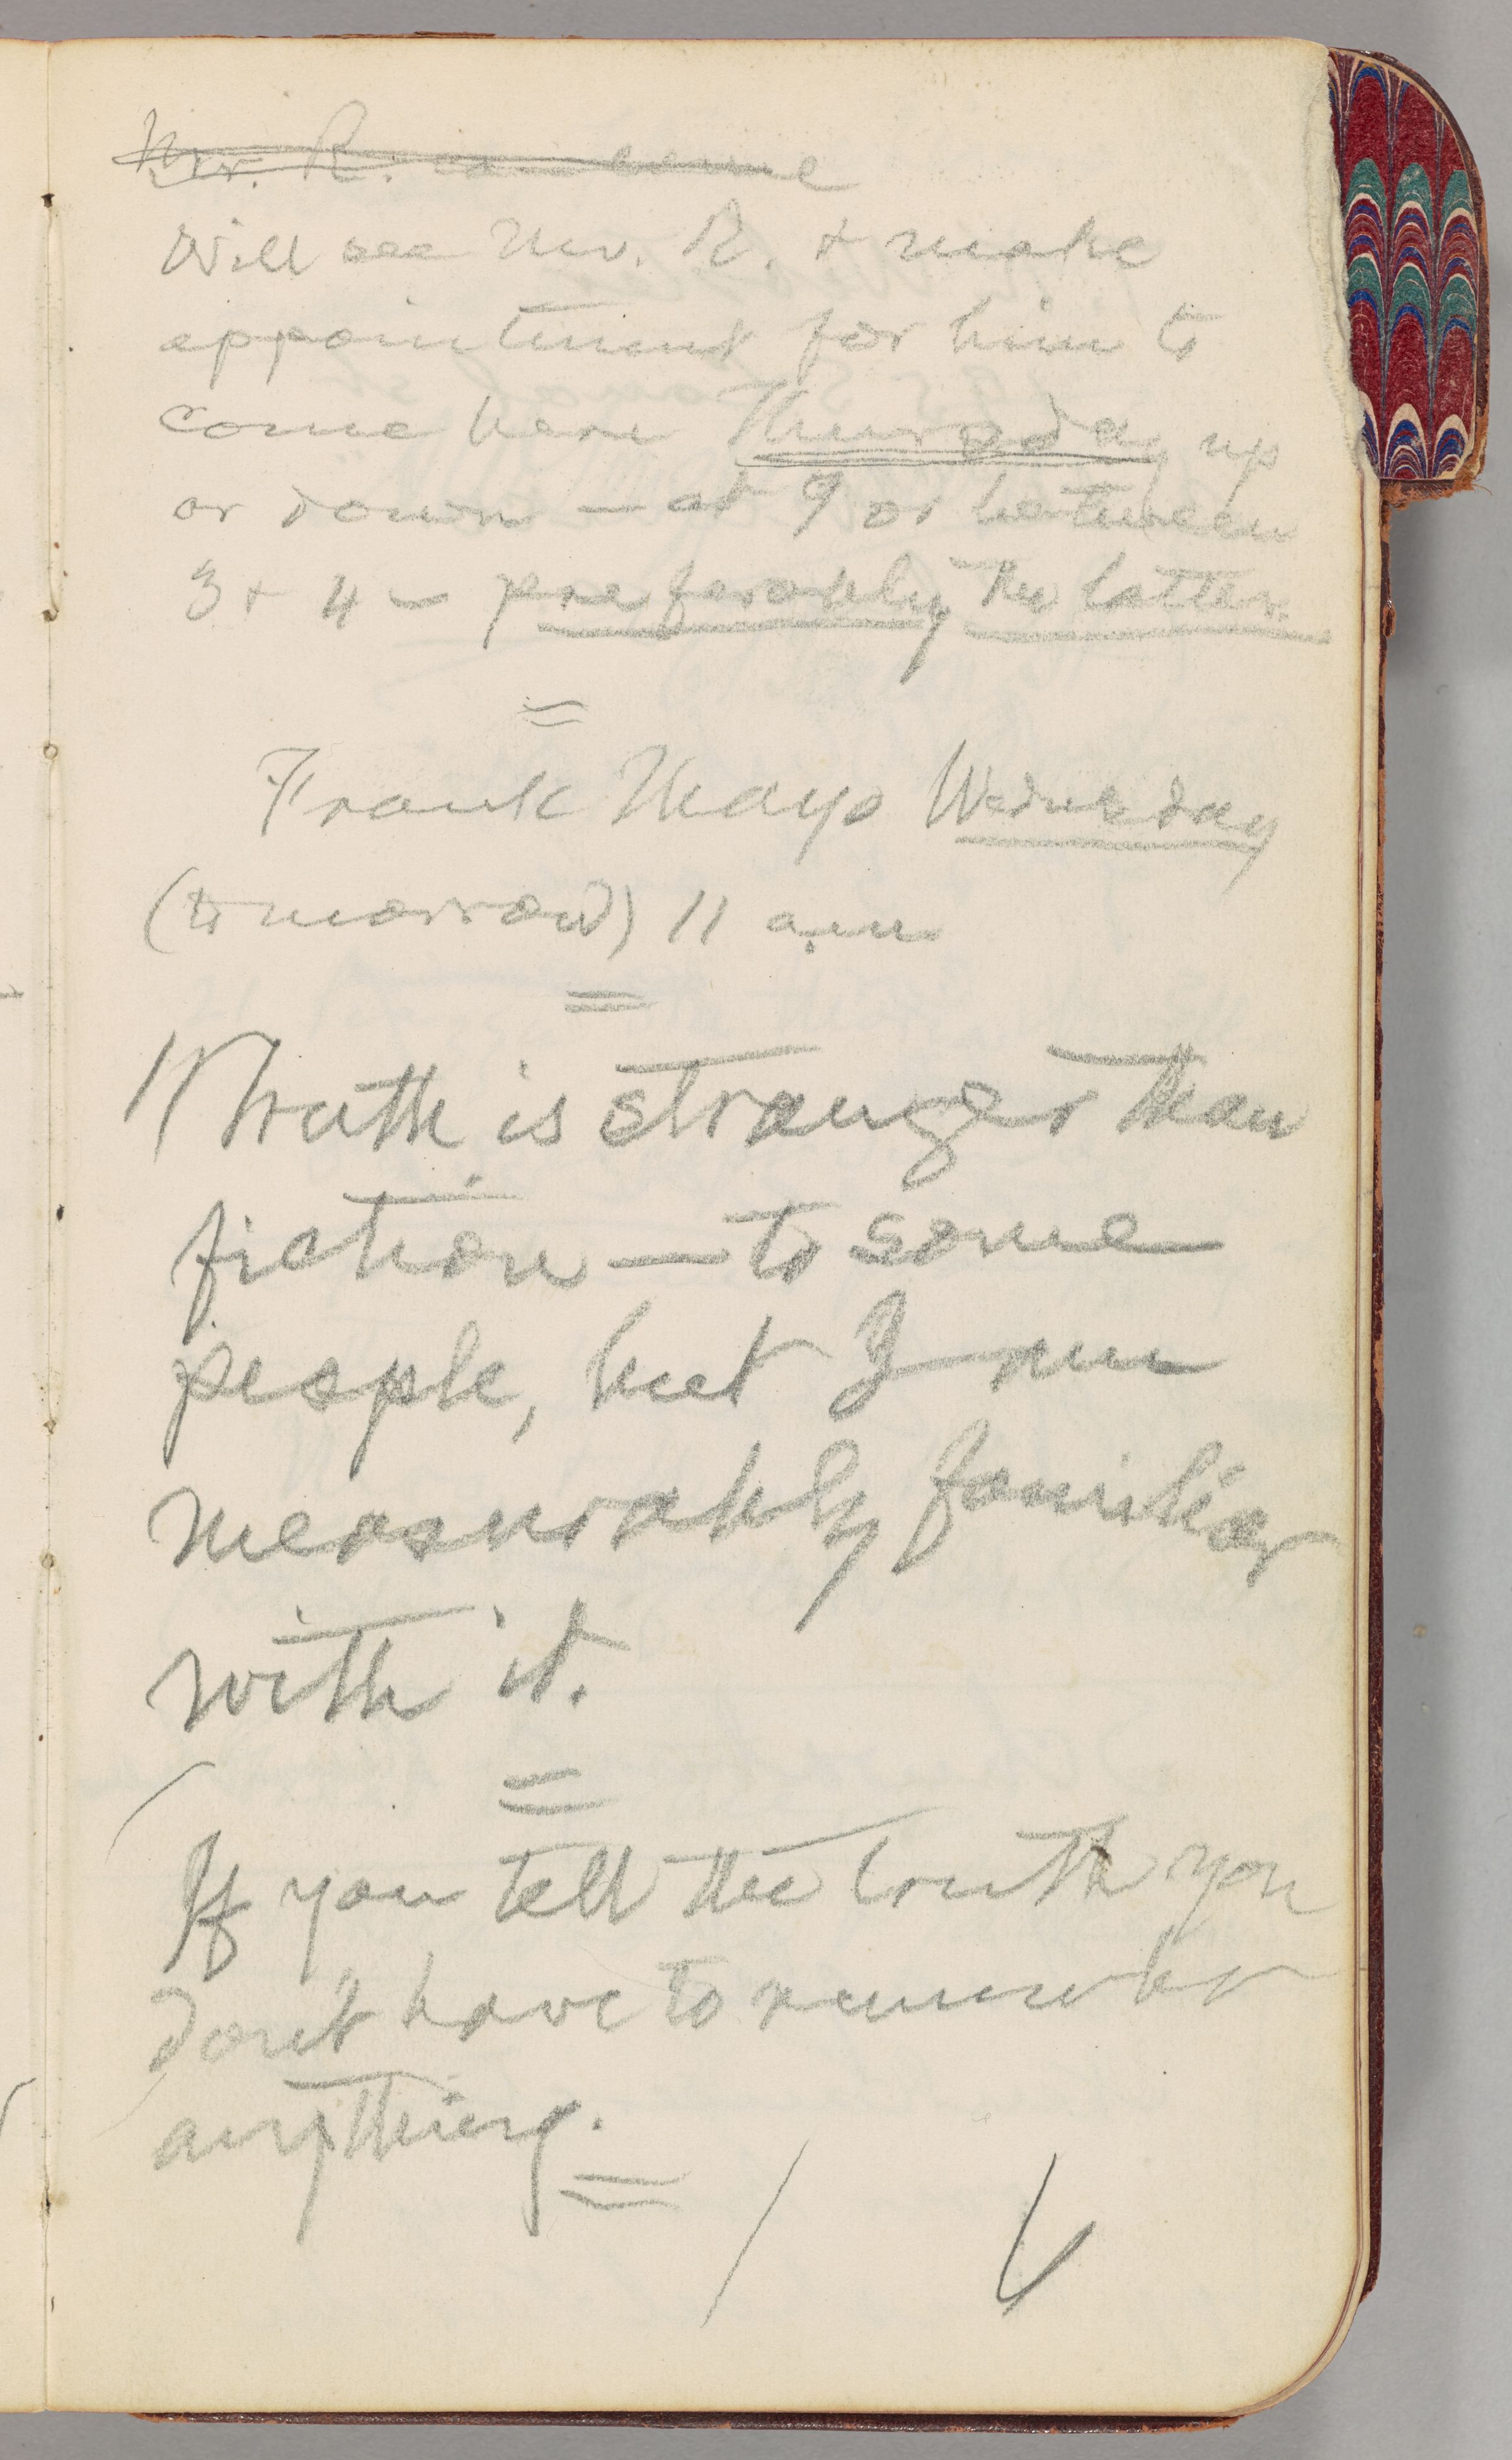 Mr. R. can come
Will see Mr. R. & make
appointment for him to
come here Thursday up
or down — at 9 or between
3 & 4 — preferably the latter.
=
Frank Mayo Wednesday
(tomorrow) 11 a.m
=
Truth is stranger than
fiction — to some
people, but I am
measurably familiar
with it.
=
If you tell the truth you
don't have to remember
anything.
=